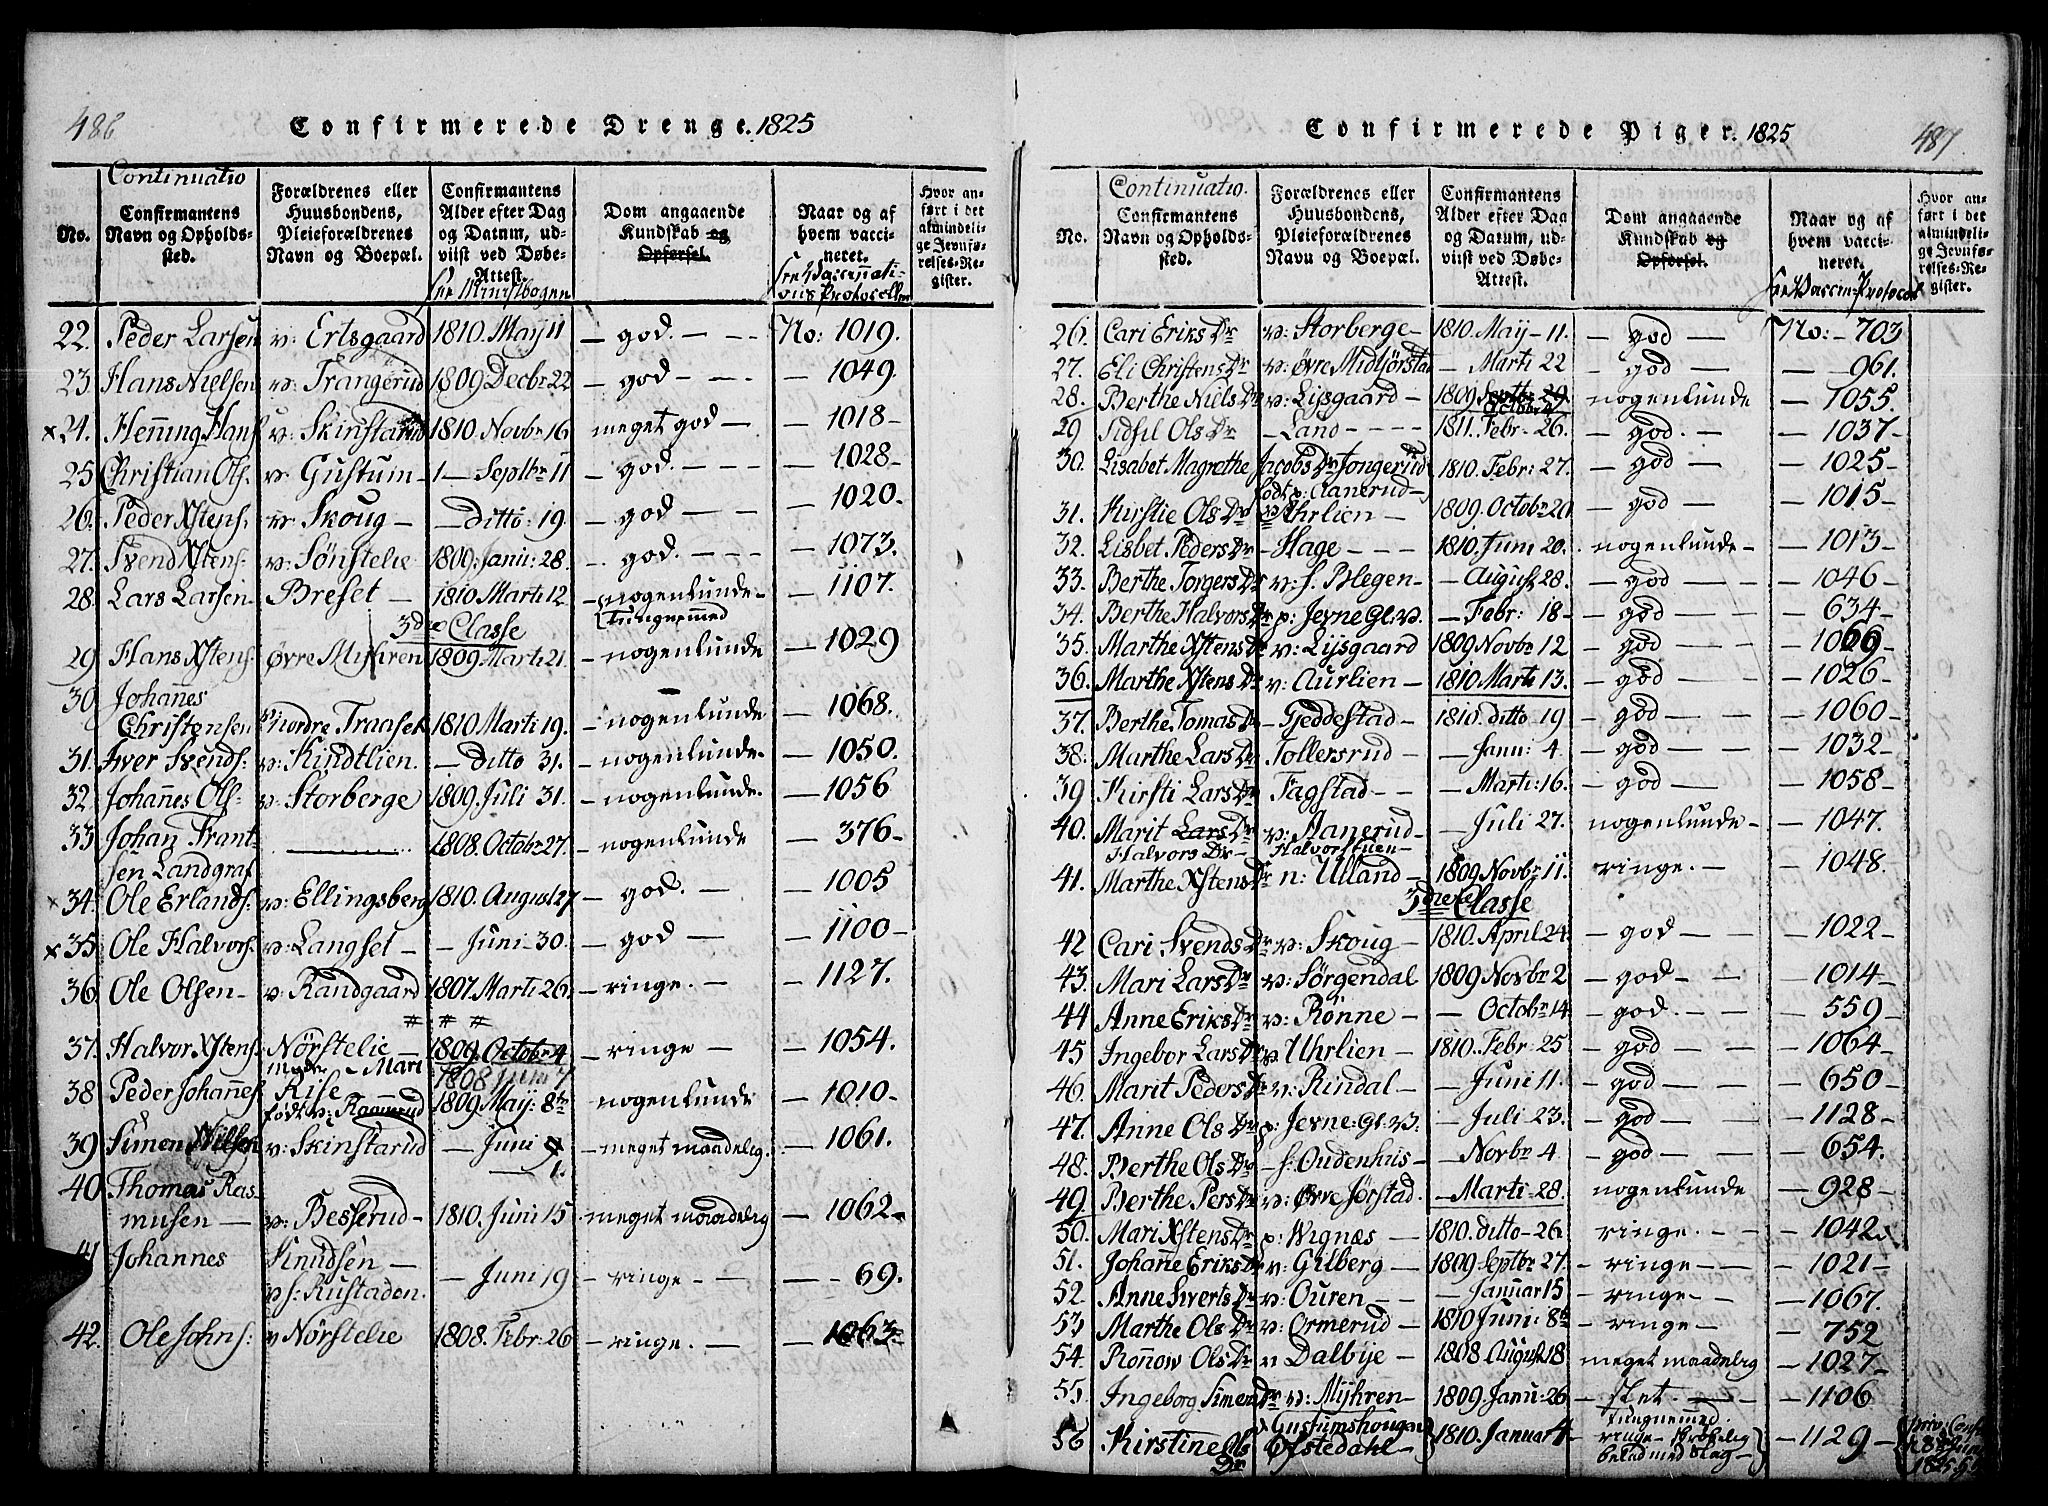 486
Confirmerede Drenge. 1825
Continuatio
No.
Confirmantens Navn og Opholdssted.
Forældrenes eller Huusbondens, Pleieforældrenes Navn og Boepæl.
Confirmantens Alder efter Dag og Datum, udviist ved Døbe-Attest.
Dom angaaende Kundskab og Opførsel.
Naar og af hvem vaccineret.
Hvor anført i det almindelige Jevnførelses-Register.
22. Peder Larsen v: Ertsgaard 1810. May 11 – god – – – No: 1019.
23 Hans Nielsen v: Trangerud 1809 Decbr 22 – god – – – 1049.
x 24. Henning Hans v: Skinstarud 1810. Novbr 16 meget god – – 1018 –
25 Christian Ols. v: Gustum – 1 – Septbr 11 – god. – – – 1028 –
26. Peder Xstens. v: Skoug – – Ditto: 19. – god – – – 1020 –
27. Svend Xstens. v: Sønstelie 1809. Janu: 28. – god. – – – 1073.
28. Lars Larsen – Breset – 1810 Marti 12 – nogenlunde – – 1107.
Tungnemmed
3die Classe
29 Hans Xstens. Øvre Myhren 1809. Marti 21. – nogenlunde – 1029
30. Johannes
Christensen nordre Traaset 1810. Marti 19. – nogenlunde – 1068.
31. Iver Svends. v: Kindtlien. – Ditto 31. – nogenlunde. – 1050.
32. Johannes Ols – v: Storberge 1809. Juli 31. – nogenlunde. – 1056
33 Johan Frantsen Landgraf 1808. Octobr 27. – nogenlunde – 376 –
x 34. Ole Erlands. v: Ellingsberg 1810. August 27 – god. – – 1005
x 35. Ole Halvors. v: Langset – – Juni 30. – god – – 1100 –
36. Ole Olsen – v: Randgaard 1807. Marti 26. – ringe. – – 1127.
# # #
37. Halvor Xstens. Nørstelie – 1809. Octobr 4 – ringe – – 1054.
Mari
1808 Juni 7
38 Peder Johannes Rise – 1809 May: 8de nogenlunde – 1010 –
født v: Raanerud
39 Simen Nilsen v: Skinstarud – Juni 9 – meget maadelig. – 1061.
1.
40. Thomas Rasmusen – v: Besserud – 1810. Juni 15 meget maadelig – 1062 –
41 Johannes Knudsen –
v s: Rustaden. – Juni 19 – ringe – – – 69.
42. Ole Johns: v Nørstelie 1808. Febr: 26 – ringe. – – 1063 –
Confirmerede Piger. 1825
487
Continuatio.
No.
Confirmantens Navn og Opholdssted.
Forældrenes eller Huusbondens, Pleieforældrenes Navn og Boepæl.
Confirmantens Alder efter Dag og Datum, udviist ved Døbe-Attest.
Dom angaaende Kundskab og Opførsel.
Naar og af hvem vaccineret.
Hvor anført i det almindelige Jevnførelses-Register.
26. Cari Eriks Dr v: Storberge – 1810. May – 11. – god – No: – 703
27. Eli Christens Dr v: Øvre Midtjørstad – Marti 22 – god – – 961.
28. Berthe Niels Dr v: Lysgaard – 1809 Septbr 29 nogenlunde – 1055.
Octobr 4
29 Sidsil Ols Dr – Land – – – 1811. Febr – 26. – god. – – 1037 –
30. Lisabet Magrathe Jacobs Dr Jongerud 1810. Febr: 27. – god – – 1025 –
født p: Aanerud –
31. Kirstie Ols Dr v Uhrlien – 1809. Octobr 20 – god – – 1015 –
32. Lisbet Peders Dr – Hage – – – 1810. Juni 20. nogenlunde – – 1013 –
33. Berthe Torgers Dr v: s. Blegen – – August 28. – god – – 1046 –
34. Berthe Halvors Dr p: Jevne Gl: v. – Febr: 18 – – god – – 634 –
35. Marthe Xstens Dr v: Lysgaard 1809 Novbr 12 – god – – 1069 –
36. Marthe Xstens Dr v: Aurlien – 1810. Marti 13. – god – – 1026 –
37. Berthe Tomas Dr – Gjeddestad – 1810. ditto – 19 – god – – 1060 –
38. Marthe Lars Dr Tollersrud – – Janu: 4. – god – – 1032 –
39 Kirsti Lars Dr Fagstad – – – Marti: 16. – god – – 1058 –
40. Marit Lars Dr v: Aanerud – – Juli 27. nogenlunde – – 1047.
Halvors Dr – Halvorstuen –
41. Marthe Xstens Dr n: Ulland – 1809 Novbr 11. ringe. – – 1048.
3die Classe
42 Cari Svends Dr v: Skoug – 1810. April 24. – god – – 1022 –
43. Mari Lars Dr v: Sørgendal 1809 Novbr 2 – god – – 1014 –
44 Anne Eriks Dr v: Rönne – – Octobr 14 – god. – – 559 –
45 Ingebor Lars Dr v Uhrlien – 1810. Febr 25 – god – – 1064 –
46. Marit Peders Dr v: Rindal – – Juni 11. – god – – 650 –
47. Anne Ols Dr p: Jevne: Gl: v. – Juli 23. – god – – 1128 –
48. Berthe Ols Dr – s: Oudenhus – – Novbr 4 – god – – 654.
49. Berthe Pers Dr v: Øvre Jørstad. – Marti – 28. nogenlunde – 928 –
50. Mari Xstens Dr p: Wignæs – 1810. ditto – 26. ringe. – – 1042.
51. Johane Eriks Dr v: Gilberg – 1809 Septbr 27. – ringe – – 1021 –
52. Anne Sverts Dr v: Ouren – – Januar 15 – ringe – – 1067.
53 Marthe Ols Dr v: Ormerud – 1810 Juni: 8de – ringe – – 752
54. Ronnow Ols Dr v Dalbye – 1808 August 18 meget maadelig – 1027 –
55 Ingeborg Simens Dr v: Myhren – 1809. Janu: 26 – slet. – – 1106
56 Kirstine Ols Dr Gustumshougen Øfstedahl – 1810. Januar 4 – Tungnemmed. ringe – – 1129 –
1825